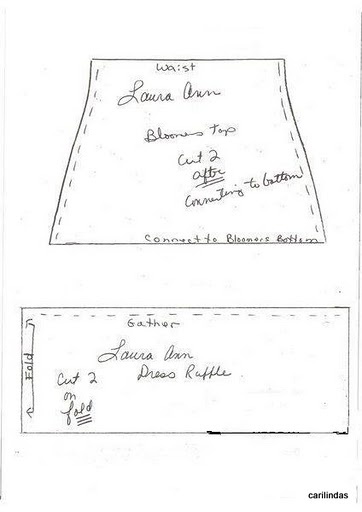 Waist
Laura Ann
Bloomers Top
Cut 2
after
Connecting to bottom
Connect to Bloomers Bottom
Gather
Fold
Laura Ann
Dress Ruffle
Cut 2
on
fold
carilindas